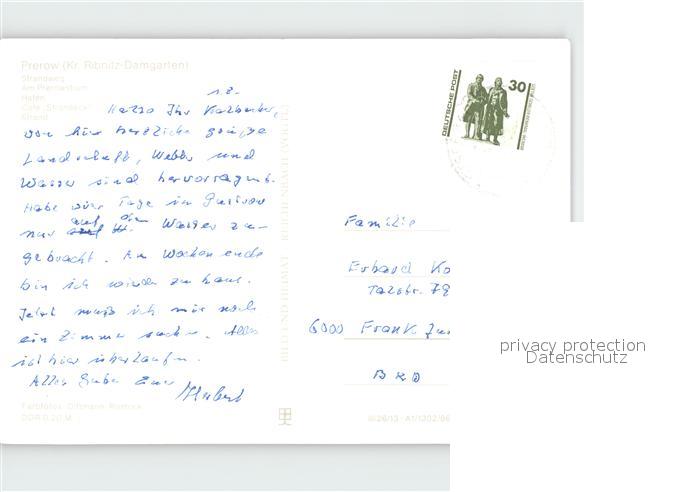 Prerow (Kr. Ribnitz-Damgarten)
Strandweg
Am Prerowstrom
Hafen
Café „Strandeck"
Strand
Hallo Ihr
von hier herzliche Grüße
Landschaft, Wetter und
Wasser sind hervorragend.
Habe vier Tage in
nur auf dem Wasser zu-
gebracht. Am Wochenende
bin ich wieder zu Haus.
Jetzt muß ich mir noch
ein Zimmer suchen. Alles
ist hier überlaufen.
Alles Gute Euer
Hubert
Farbfotos: Dittmann, Rostock
DDR 0,20 M
BILD UND HEIMAT REICHENBACH (VOGTL)
III/26/13 A1/1302/86
DEUTSCHE POST
30
Familie
Erhard Ko
Talstr. 79
6000 Frankfur
BRD
privacy protection
Datenschutz